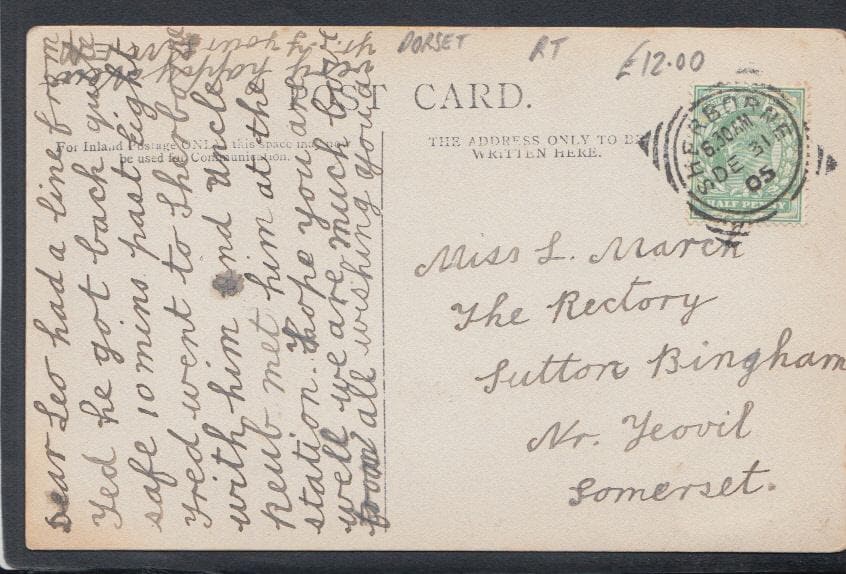 DORSET
RT
£12.00
POST CARD.
For Inland Postage ONLY this space may now
be used for Communication.
THE ADDRESS ONLY TO BE
WRITTEN HERE.
SHERBORNE
6.30AM
DE 31
05
HALF PENNY
Miss L. March
The Rectory
Sutton Bingham
Nr. Yeovil
Somerset.
Dear Leo had a line from
Ted he got back quite
safe 10 mins past eight
Fred went to Sherborne
with him and Uncle
Reub met him at the
station. Hope you are
well we are much better
from all wishing you a
happy